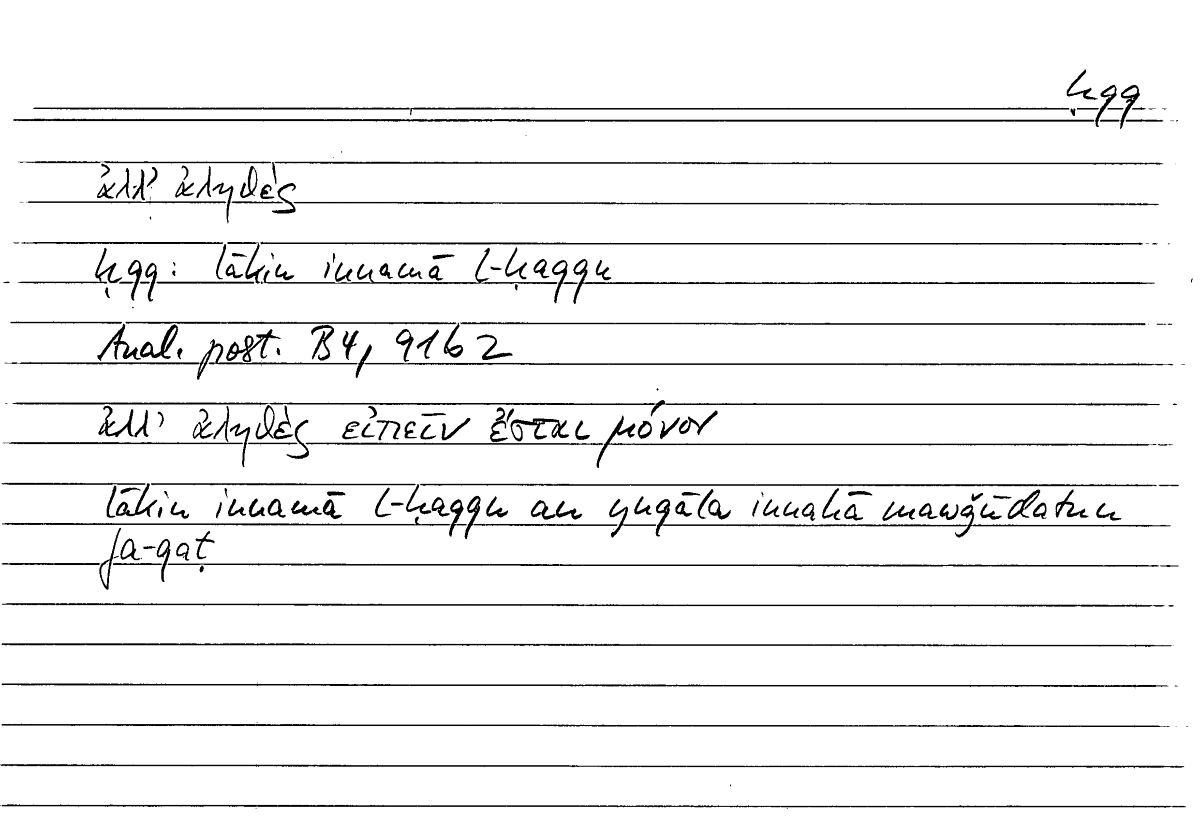 ḥqq
ἀλλ' ἀληθὲς
ḥqq: lākin innamā l-ḥaqqu
Anal. post. B4, 91b2
ἀλλ' ἀληθὲς εἰπεῖν ἔσται μόνον
lākin innamā l-ḥaqqu an yuqāla innahā mawǧūdatun
fa-qaṭ